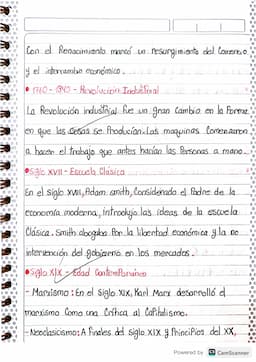 Con el Renacimiento marcó un resurgimiento del Comercio
y el intercambio económico.
• 1760 - 1840 - Revolución Industrial
La Revolución industrial fue un gran Cambio en la Forma
en que las Cosas se Producían. Las maquinas Comenzaron
a hacer el trabajo que antes hacían las Personas a mano.
• Siglo XVII - Escuela Clásica
En el siglo XVIII, Adam Smith, Considerado el Padre de la
economía moderna, introdujo las ideas de la escuela
Clásica. Smith abogaba Por la libertad económica y la no
intervención del gobierno en los mercados.
• Siglo XIX - Edad Contemporánea
- Marxismo: En el Siglo XIX, Karl Marx desarrolló el
marxismo Como una Crítica al Capitalismo.
- Neoclasicismo: A finales del Siglo XIX y Principios del XX,
Powered by CS CamScanner